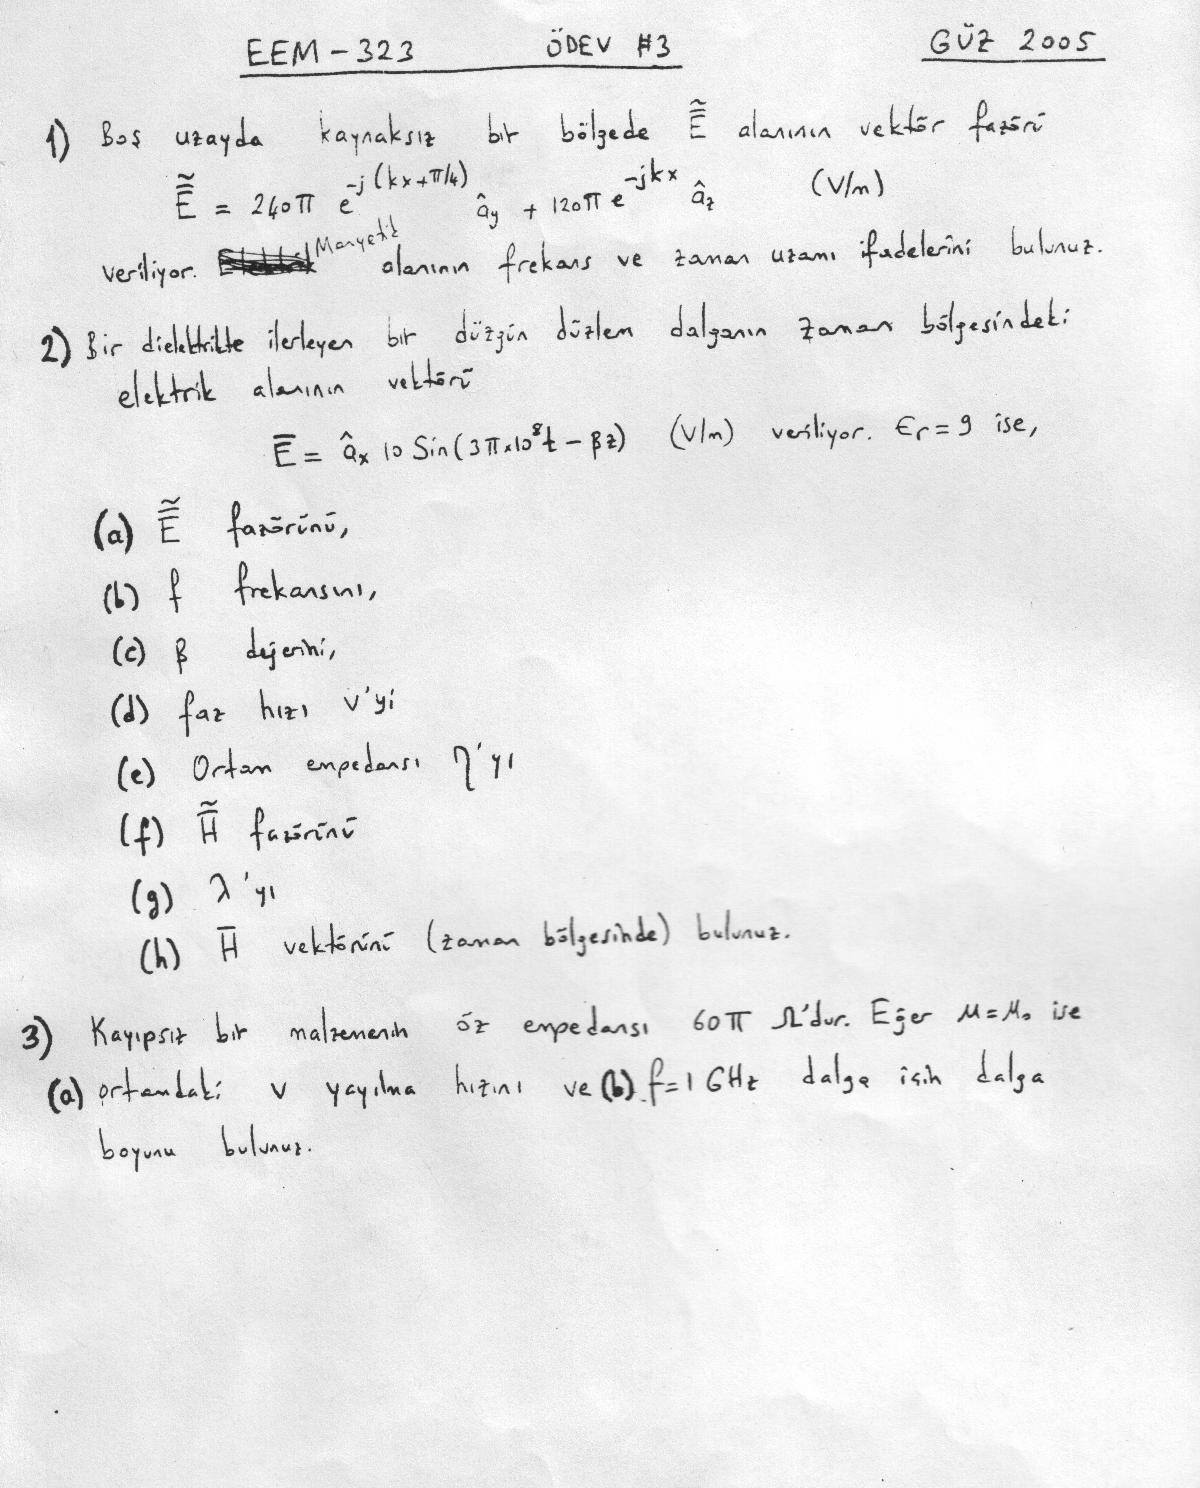 EEM-323 ÖDEV #3 GÜZ 2005
1) Boş uzayda kaynaksız bir bölgede Ẽ̄ alanının vektör fazörü
Ẽ̄ = 240π e^{-j(kx+π/4)} â_y + 120π e^{-jkx} â_z (V/m)
veriliyor. Manyetik alanının frekans ve zaman uzamı ifadelerini bulunuz.
2) Bir dielektrikte ilerleyen bir düzgün düzlem dalganın zaman bölgesindeki
elektrik alanının vektörü
Ē = â_x 10 Sin(3π×10^8 t - βz) (V/m) veriliyor. ϵ_r = 9 ise,
(a) Ẽ̄ fazörünü,
(b) f frekansını,
(c) β değerini,
(d) faz hızı v'yi
(e) Ortam empedansı η'yı
(f) H̃̄ fazörünü
(g) λ'yı
(h) H̄ vektörünü (zaman bölgesinde) bulunuz.
3) Kayıpsız bir malzemenin öz empedansı 60π Ω'dur. Eğer μ=μ₀ ise
(a) ortamdaki v yayılma hızını ve (b) f=1 GHz dalga için dalga
boyunu bulunuz.